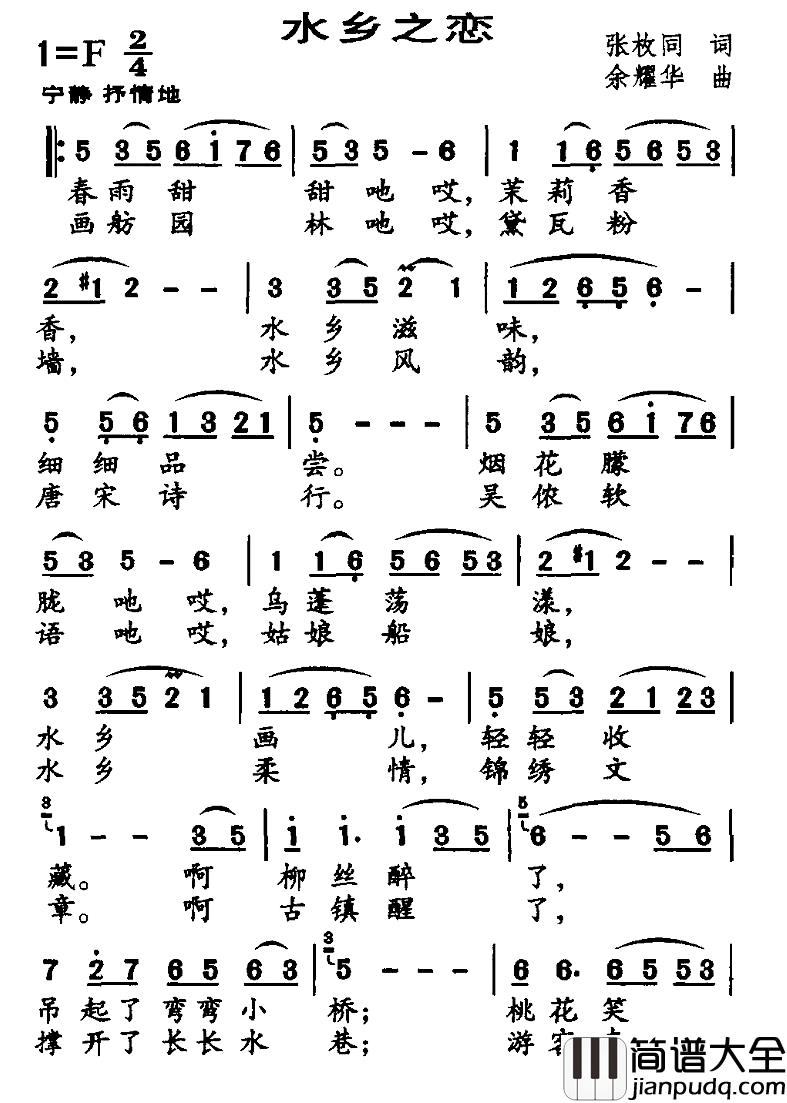 水乡之恋
1=F 2/4
张枚同 词
余耀华 曲
宁静 抒情地
5 35 6i 76 | 53 5 - 6 | 1 16 56 53
春雨甜 甜吔哎，茉莉香
画舫园 林吔哎，黛瓦粉
2 #1 2 - - | 3 35 2 1 | 12 65 6 -
香， 水乡滋 味，
墙， 水乡风 韵，
5 56 13 21 | 5 - - - | 5 35 6i 76
细细品 尝。 烟花朦
唐宋诗 行。 吴侬软
53 5 - 6 | 1 16 56 53 | 2 #1 2 - -
胧吔哎，乌蓬荡 漾，
语吔哎，姑娘船 娘，
3 35 2 1 | 12 65 6 - | 5 53 21 23
水乡 画 儿，轻轻收
水乡 柔 情，锦绣文
3 1 - - 35 | i i. i 35 | 5 6 - - 56
藏。 啊 柳丝醉 了，
章。 啊 古镇醒 了，
7 27 65 63 | 3 5 - - - | 6 6. 
吊起了弯弯小 桥； 桃花笑
撑开了长长水 巷； 游客
简谱大全
jianpudq.com